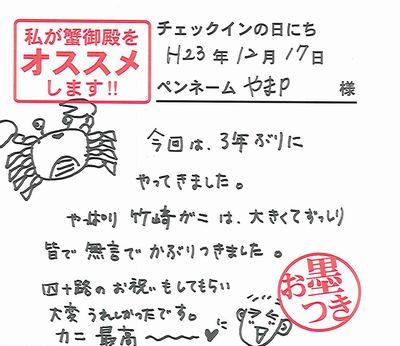 私が蟹御殿を
オススメ
します!!
チェックインの日にち
H23年12月17日
ペンネーム やまP 様
今回は、3年ぶりに
やってきました。
やっぱり 竹崎がには、大きくてずっしり
皆で無言でかぶりつきました。
四十路のお祝いもしてもらい
大変うれしかったです。
カニ 最高〜〜〜♥
お墨つき